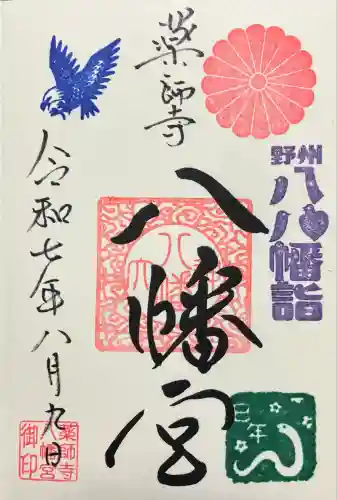 野州
八八幡詣
巳年
薬師寺
八幡宮
令和七年八月九日
薬師寺
八幡宮
御印